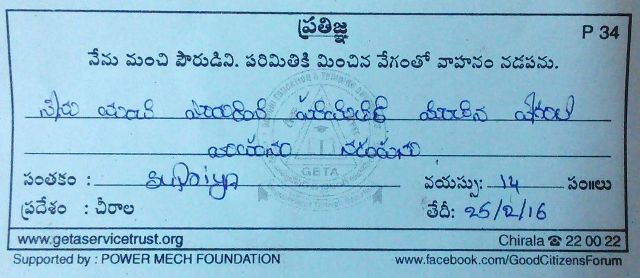 ప్రతిజ్ఞ
P 34
నేను మంచి పౌరుడిని. పరిమితికి మించిన వేగంతో వాహనం నడపను.
నేను మంచి పౌరుడిని పరిమితికి మించిన వేగంతో
వాహనం నడపను
సంతకం : Supriya వయస్సు: 14 సం॥లు
ప్రదేశం : చీరాల తేదీ: 25/2/16
GETA
www.getaservicetrust.org Chirala ☎ 22 00 22
Supported by : POWER MECH FOUNDATION www.facebook.com/GoodCitizensForum